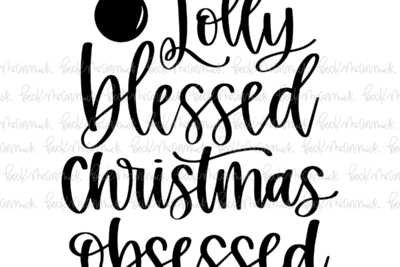 Lolly
blessed
christmas
obsessed